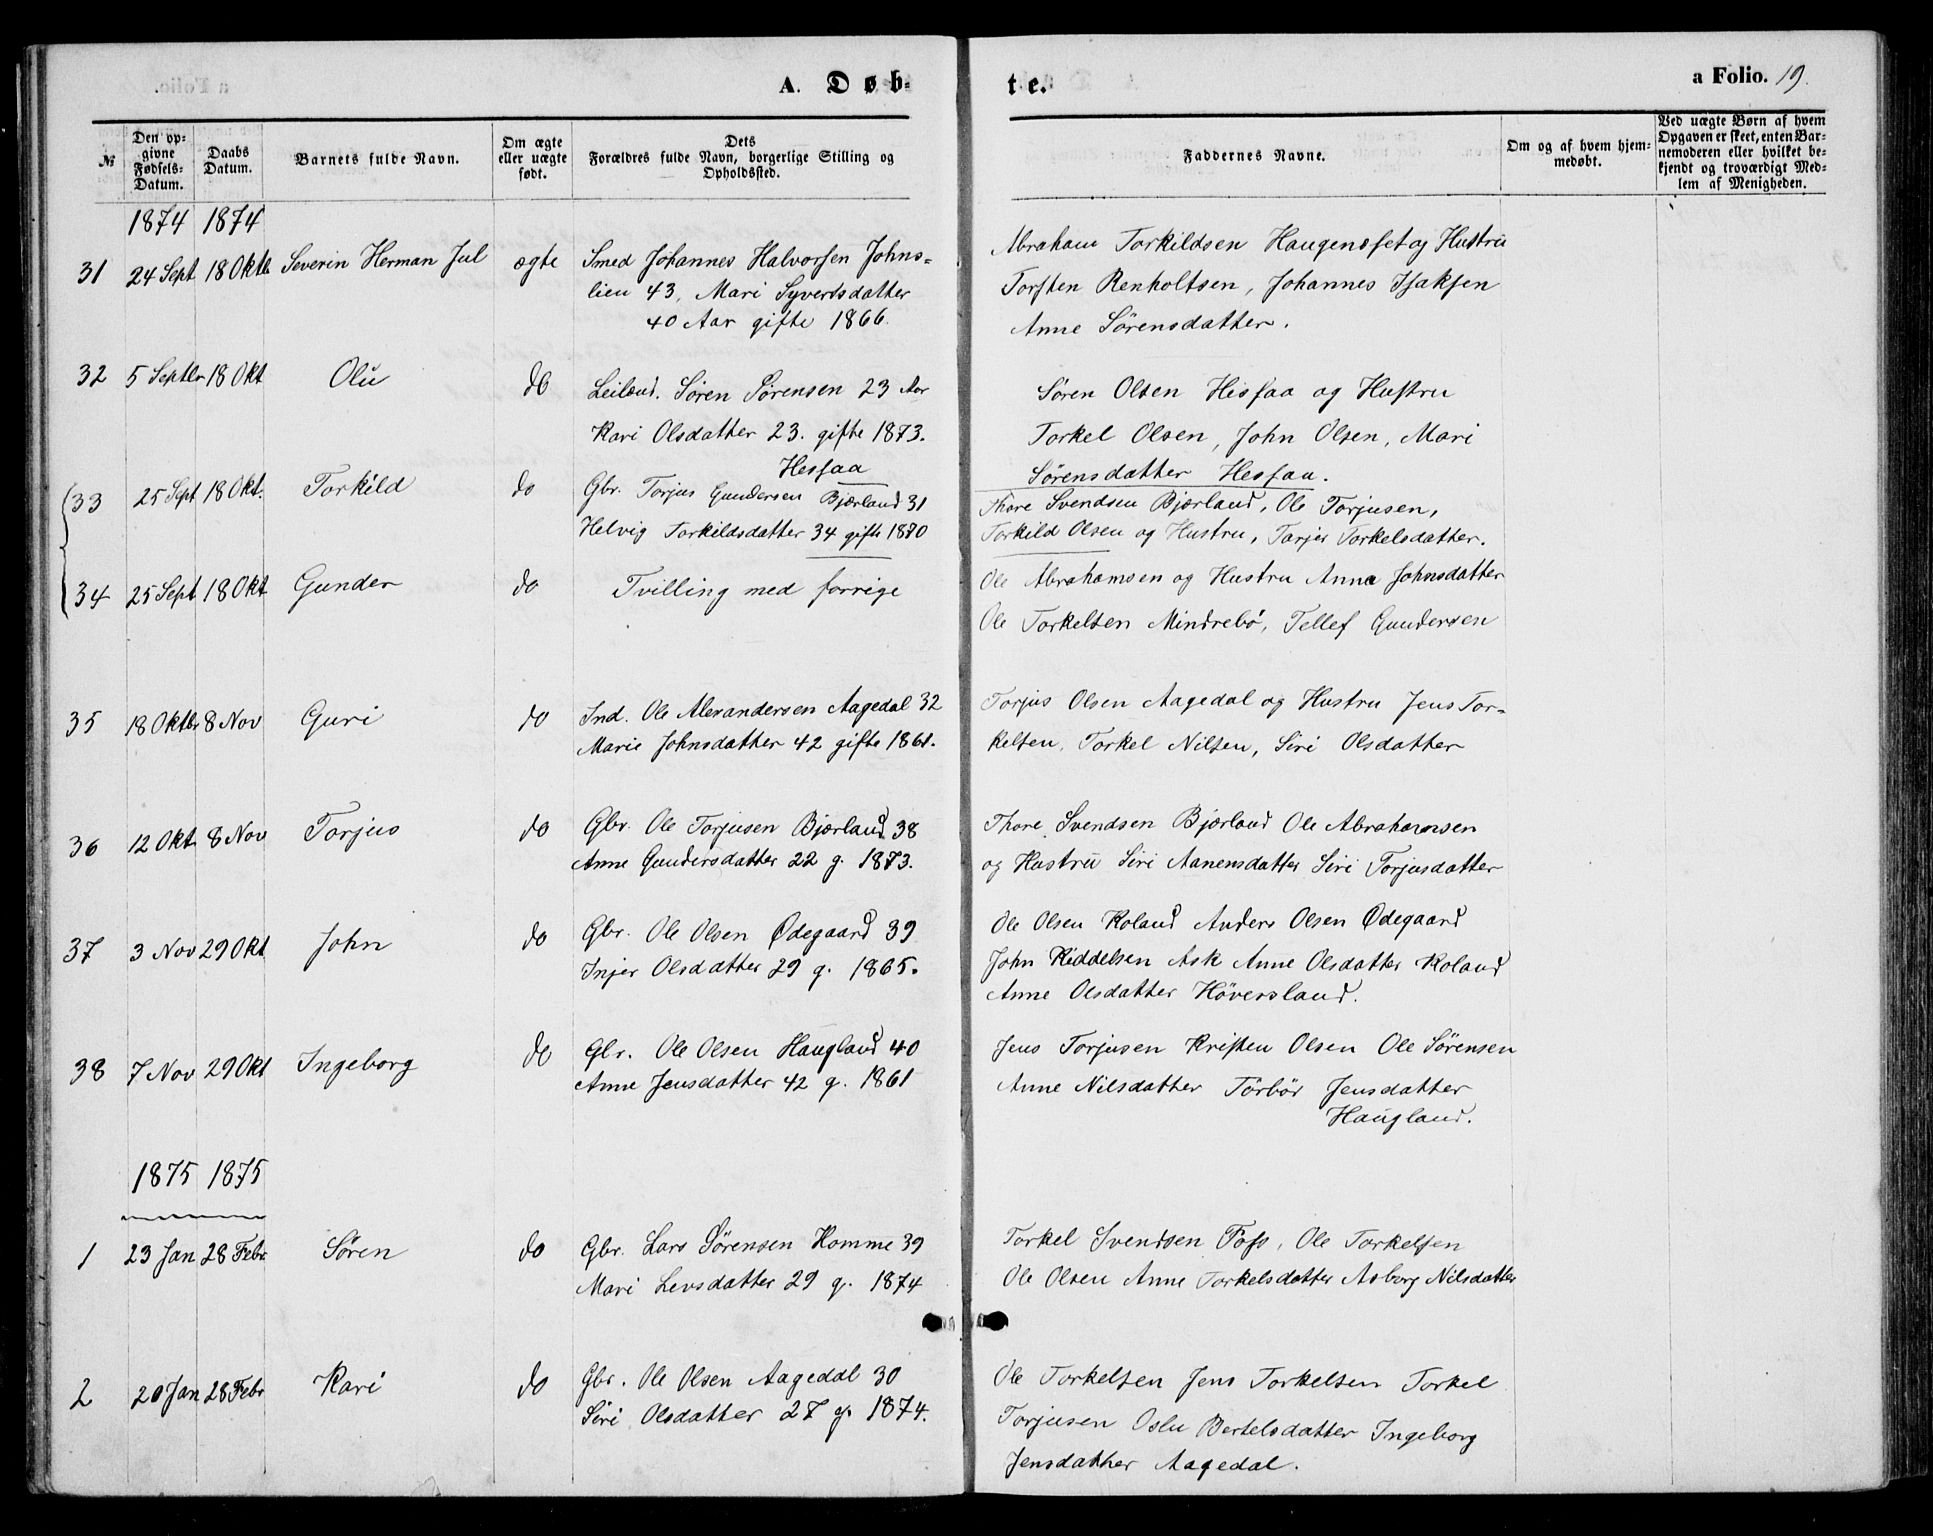 A. Døb-
te.
a Folio. 19.
№
Den op-
givne
Fødsels-
Datum.
Daabs
Datum.
Barnets fulde Navn.
Om ægte
eller uægte
født.
Dets
Forældres fulde Navn, borgerlige Stilling og
Opholdssted.
Faddernes Navne.
Om og af hvem hjem-
medøbt.
Ved uægte Børn af hvem
Opgaven er skeet, enten Bar-
nemoderen eller hvilket be-
kjendt og troværdigt Med-
lem af Menigheden.
1874 1874
31 24 Sept 18 Oktb Severin Herman Jul ægte Smed Johannes Halvorsen Johns-
lien 43, Mari Syvertsdatter
40 Aar gifte 1866.
Abraham Torkildsen Haugenæset og Hustru
Torsten Renholtsen, Johannes Isaksen
Anne Sörensdatter.
32 5 Septbr 18 Okt Olu do Leilænd. Søren Sørensen 23 Aar
Kari Olsdatter 23. gifte 1873.
Hesfaa
Søren Olsen Hisfaa og Hustru
Torkel Olsen, John Olsen, Mari
Sørensdatter Hesfaa.
33 25 Sept 18 Okt. Torkild do Gbr. Torjus Gundersen Bjærland 31
Helvig Torkildsdatter 34 gifte 1870
Thore Svendsen Bjærland, Ole Torjusen,
Torkild Olsen og Hustru, Tarjer Torkelsdatter.
34 25 Sept 18 Okt Gunder do Tvilling med forrige
Ole Abrahamsen og Hustru Anna Johnsdatter
Ole Torkelsen Mindrebø, Tellef Gundersen
35 18 Oktbr 8 Nov Guri do Ind. Ole Alexandersen Aagedal 32
Marie Johnsdatter 42 gifte 1861.
Torjus Olsen Aagedal og Hustru Jens Tor-
kelsen, Torkel Nilsen, Siri Olsdatter
36 12 Okt 8 Nov Torjus do Gbr. Ole Torjusen Bjærland 38
Anne Gundersdatter 22 g. 1873.
Thore Svendsen Bjærland Ole Abrahamsen
og Hustru Siri Aanensdatter Siri Torjusdatter
37 3 Nov 29 Okt John do Gbr. Ole Olsen Ødegaard 39
Injer Olsdatter 29 g. 1865.
Ole Olsen Roland Anders Olsen Ødegaard
John Kiddelsen Ask Anne Olsdatter Roland
Anne Olsdatter Höversland.
38 7 Nov 29 Okt Ingeborg do Gbr. Ole Olsen Haugland 40
Anne Jensdatter 42 g. 1861
Jens Torjusen Kristen Olsen Ole Sørensen
Anne Nilsdatter Törbör Jensdatter
Haugland.
1875 1875
1 23 Jan 28 Febr Sören do Gbr. Lars Sørensen Homme 39
Mari Levsdatter 29 g. 1874
Torkel Svendsen Foss, Ole Torkelsen
Ole Olsen Anne Torkelsdatter Asborg Nilsdatter
2 20 Jan 28 Febr Kari do Gbr. Ole Olsen Aagedal 30
Siri Olsdatter 27 g. 1874.
Ole Torkelsen Jens Torkelsen Torkel
Torjusen Oslu Bertelsdatter Ingeborg
Jensdatter Aagedal.